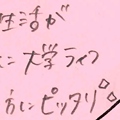 生活が
に大学ライフ
方にピッタリ◇